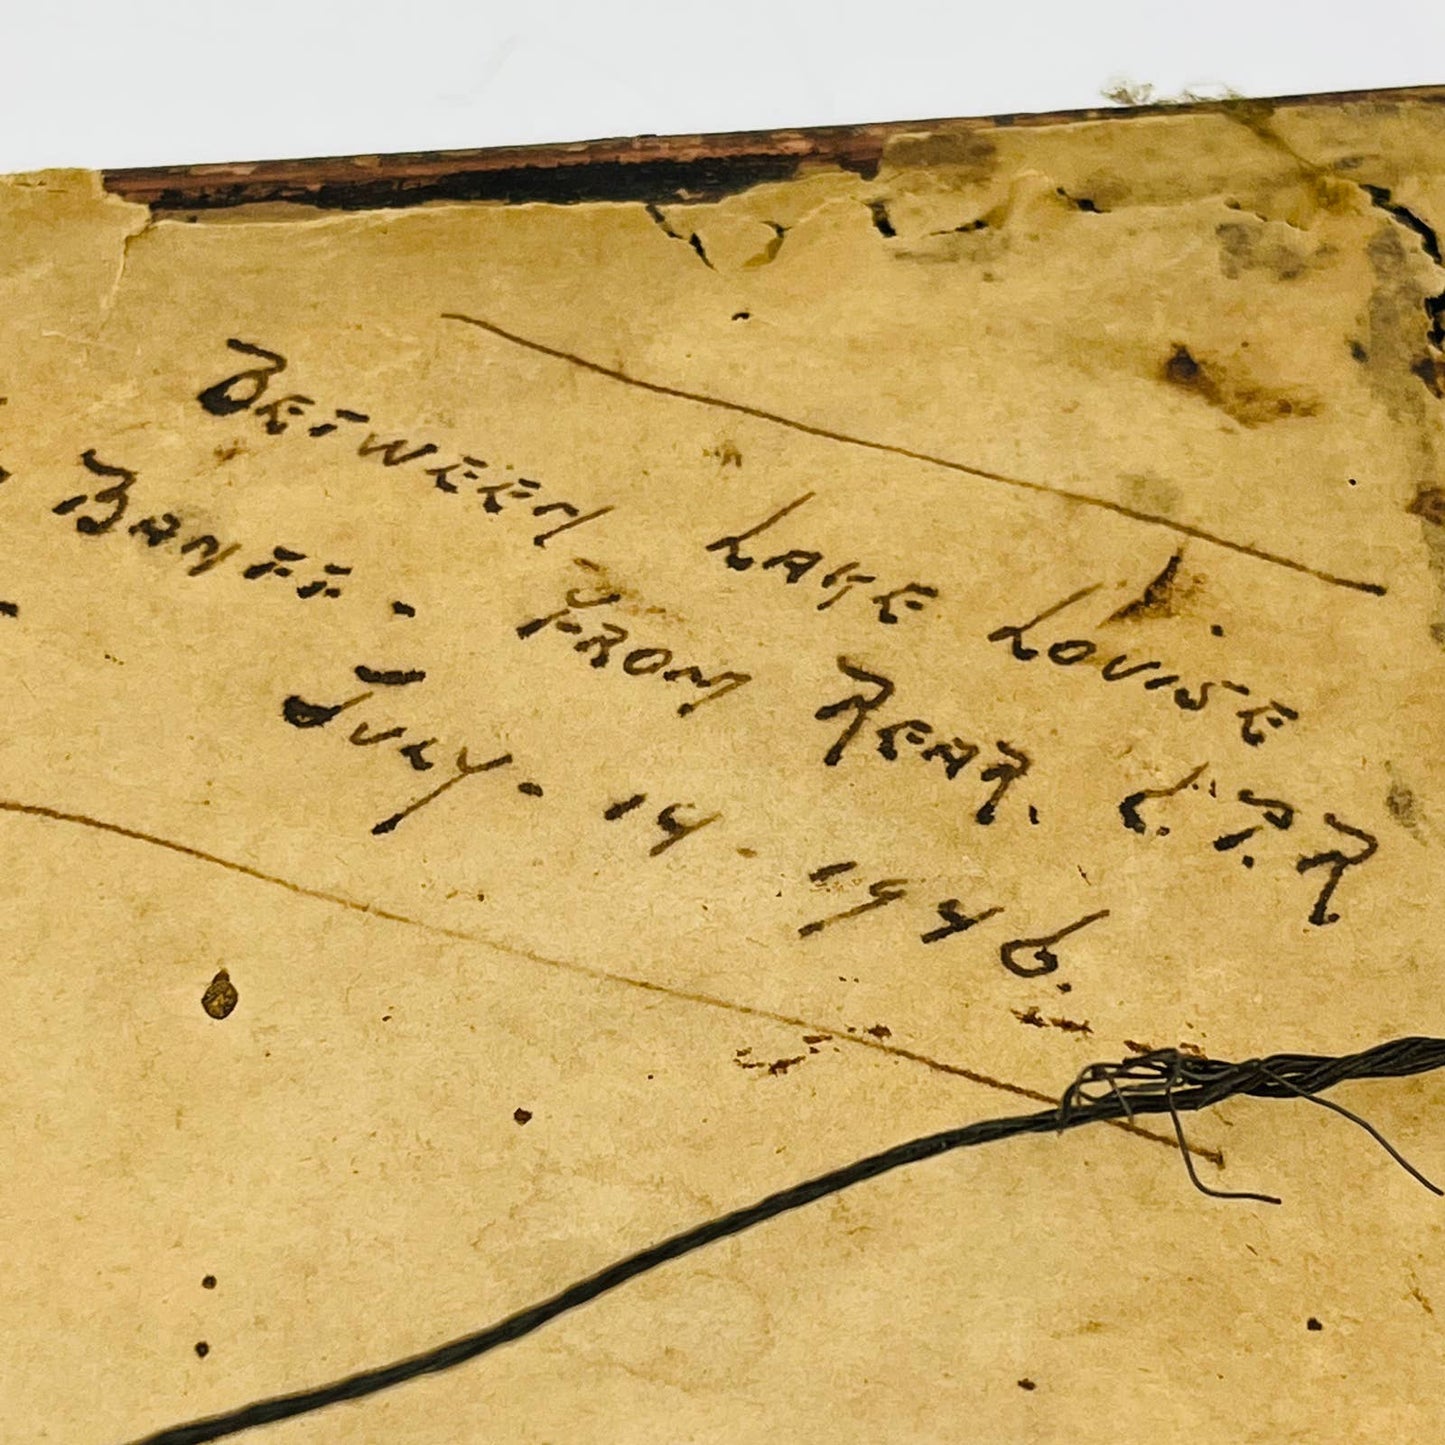 BETWEEN LAKE LOUISE
BANFF - FROM REAR. C.P.R
JULY - 14 - 1946.